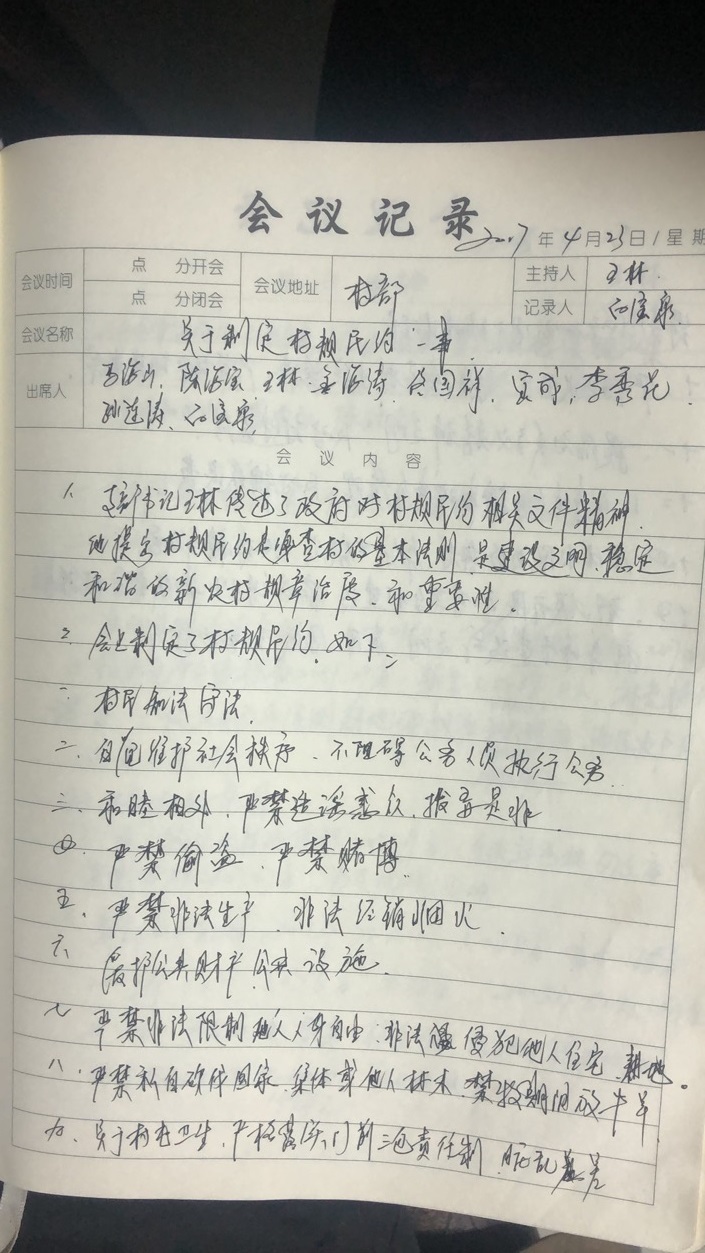 会议记录
2017年4月23日/星期
会议时间 点 分开会 会议地址 村部 主持人 王林.
点 分闭会 记录人
会议名称 关于制定村规民约一事.
出席人 陈海宝、王林、李秀花、
会议内容
1、支部书记王林传达了政府对村规民约相关文件精神.
他提出村规民约是审查村的基本法则,是建设文明、稳定
和谐的新农村规章治度、和重要性.
2、会上制定了村规民约,如下:
一、村民知法守法.
二、自觉维护社会秩序、不阻碍公务人员执行公务.
三、和睦相处,严禁造谣惑众,拨弄是非.
四、严禁偷盗、严禁赌博.
五、严禁非法生产、非法经销烟火.
六、爱护公共财产,公共设施.
七、严禁非法限制他人人身自由,非法侵犯他人住宅、耕地.
八、严禁私自砍伐国家、集体或他人林木,禁牧期间放牛羊
九、关于村屯卫生,严格落实门前三包责任制,脏乱差